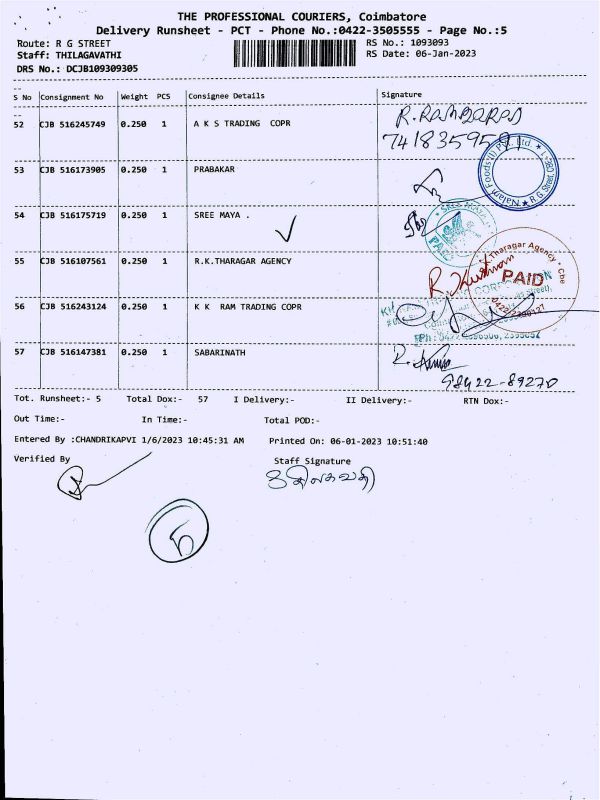 THE PROFESSIONAL COURIERS, Coimbatore
Delivery Runsheet - PCT - Phone No.:0422-3505555 - Page No.:5
Route: R G STREET
RS No.: 1093093
Staff: THILAGAVATHI
RS Date: 06-Jan-2023
DRS No.: DCJB109309305
S No Consignment No Weight PCS Consignee Details Signature
52 CJB 516245749 0.250 1 A K S TRADING COPR
7418359591
53 CJB 516173905 0.250 1 PRABAKAR
Nalam Foods (I) Pvt. Ltd. R.G. Street
54 CJB 516175719 0.250 1 SREE MAYA .
55 CJB 516107561 0.250 1 R.K.THARAGAR AGENCY
Tharagar Agency * Cbe
PAID
56 CJB 516243124 0.250 1 K K RAM TRADING COPR
57 CJB 516147381 0.250 1 SABARINATH
98422-89270
Tot. Runsheet:- 5 Total Dox:- 57 I Delivery:- II Delivery:- RTN Dox:-
Out Time:- In Time:- Total POD:-
Entered By :CHANDRIKAPVI 1/6/2023 10:45:31 AM Printed On: 06-01-2023 10:51:40
Verified By
Staff Signature
திலகவதி